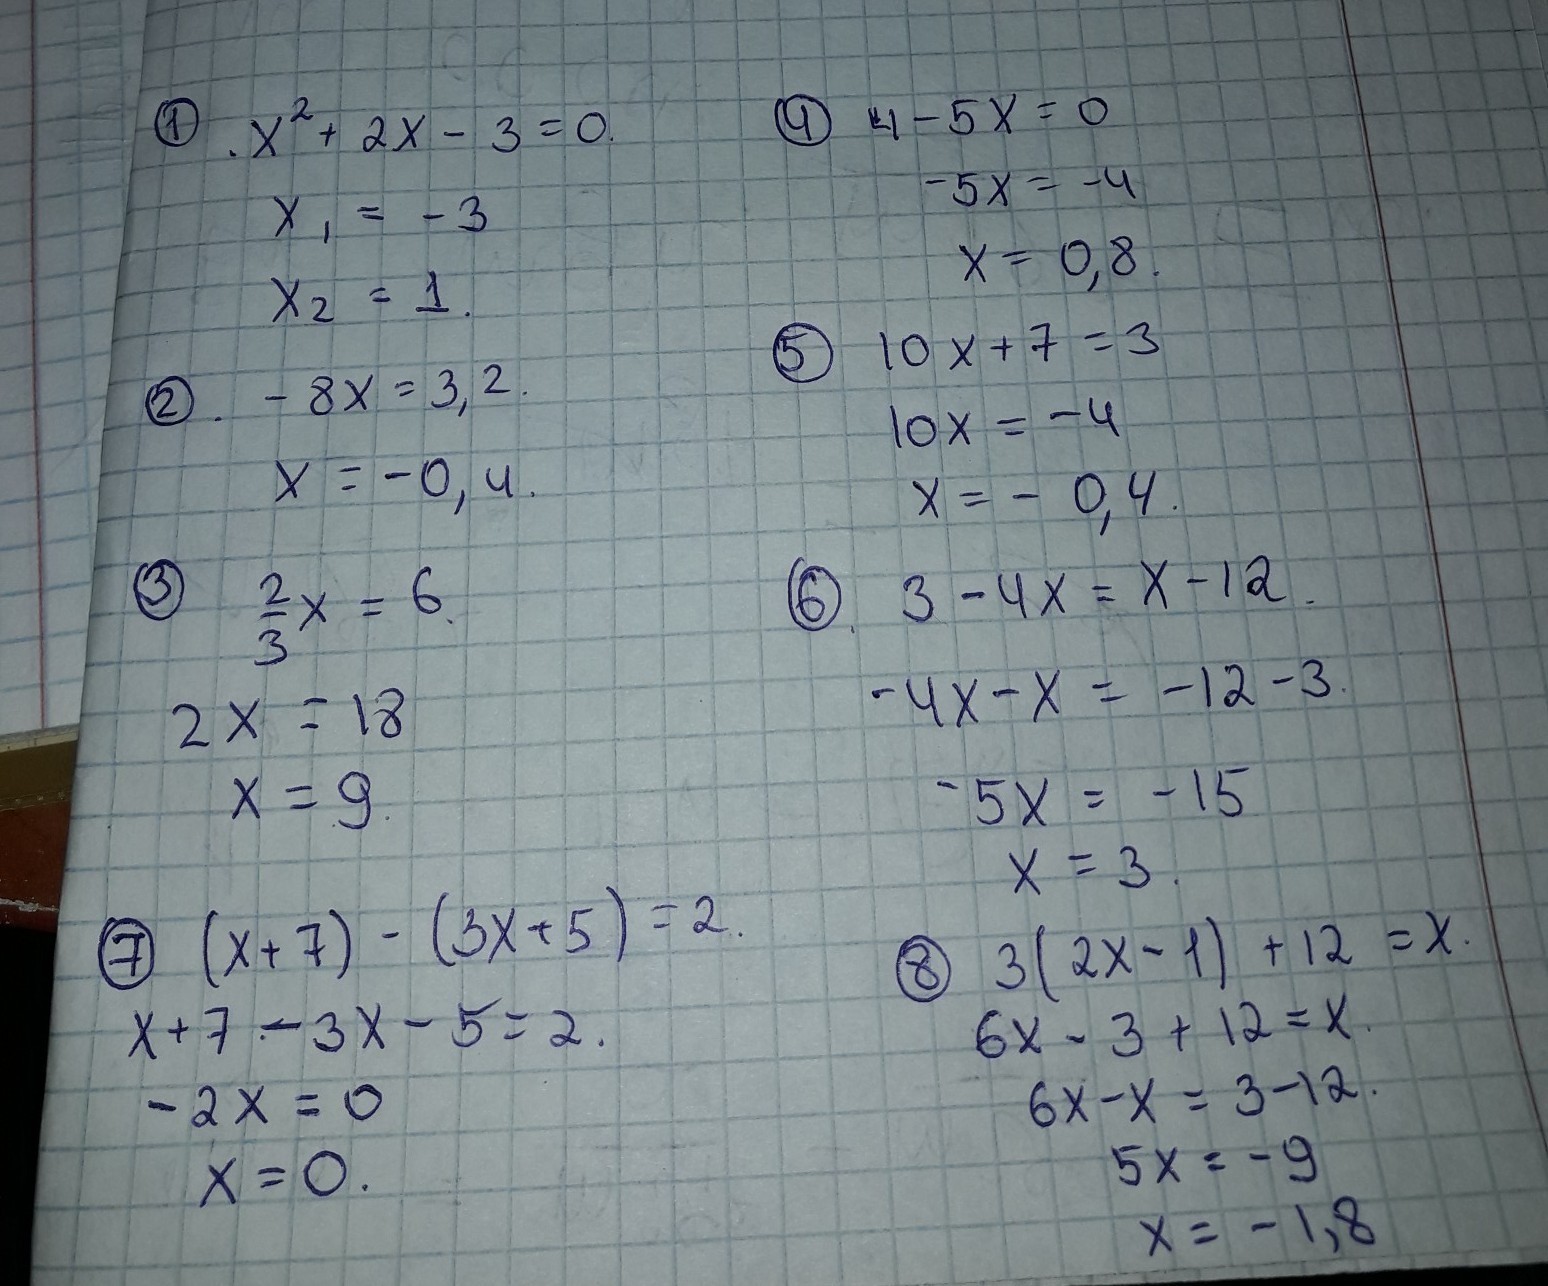 ① x² + 2x - 3 = 0.
x₁ = -3
x₂ = 1.
②. -8x = 3,2.
x = -0,4.
③ 2/3 x = 6.
2x = 18
x = 9.
④ 4 - 5x = 0
-5x = -4
x = 0,8.
⑤ 10x + 7 = 3
10x = -4
x = - 0,4.
⑥. 3 - 4x = x - 12.
-4x - x = -12 - 3.
-5x = -15
x = 3.
⑦ (x + 7) - (3x + 5) = 2.
x + 7 - 3x - 5 = 2.
-2x = 0
x = 0.
⑧ 3(2x - 1) + 12 = x.
6x - 3 + 12 = x.
6x - x = 3 - 12.
5x = -9
x = -1,8